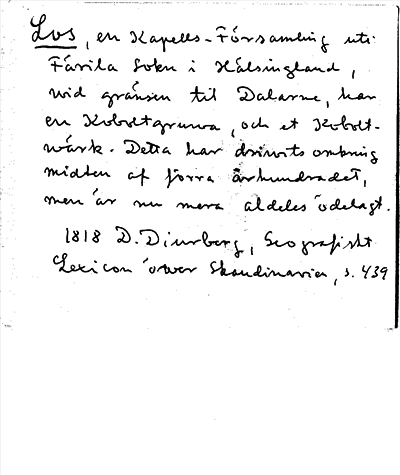 Los, en Kapells-Församling uti
Färila Sokn i Hälsingland,
wid gränsen til Dalarne, har
en Koboltgruva, och et Kobolt-
wärk. Detta har drivits omkring
midten af förra århundradet,
men är nu mera aldeles ödelagt.
1818 D. Djurberg, Geografiskt
Lexicon öwer Skandinavien, s. 439